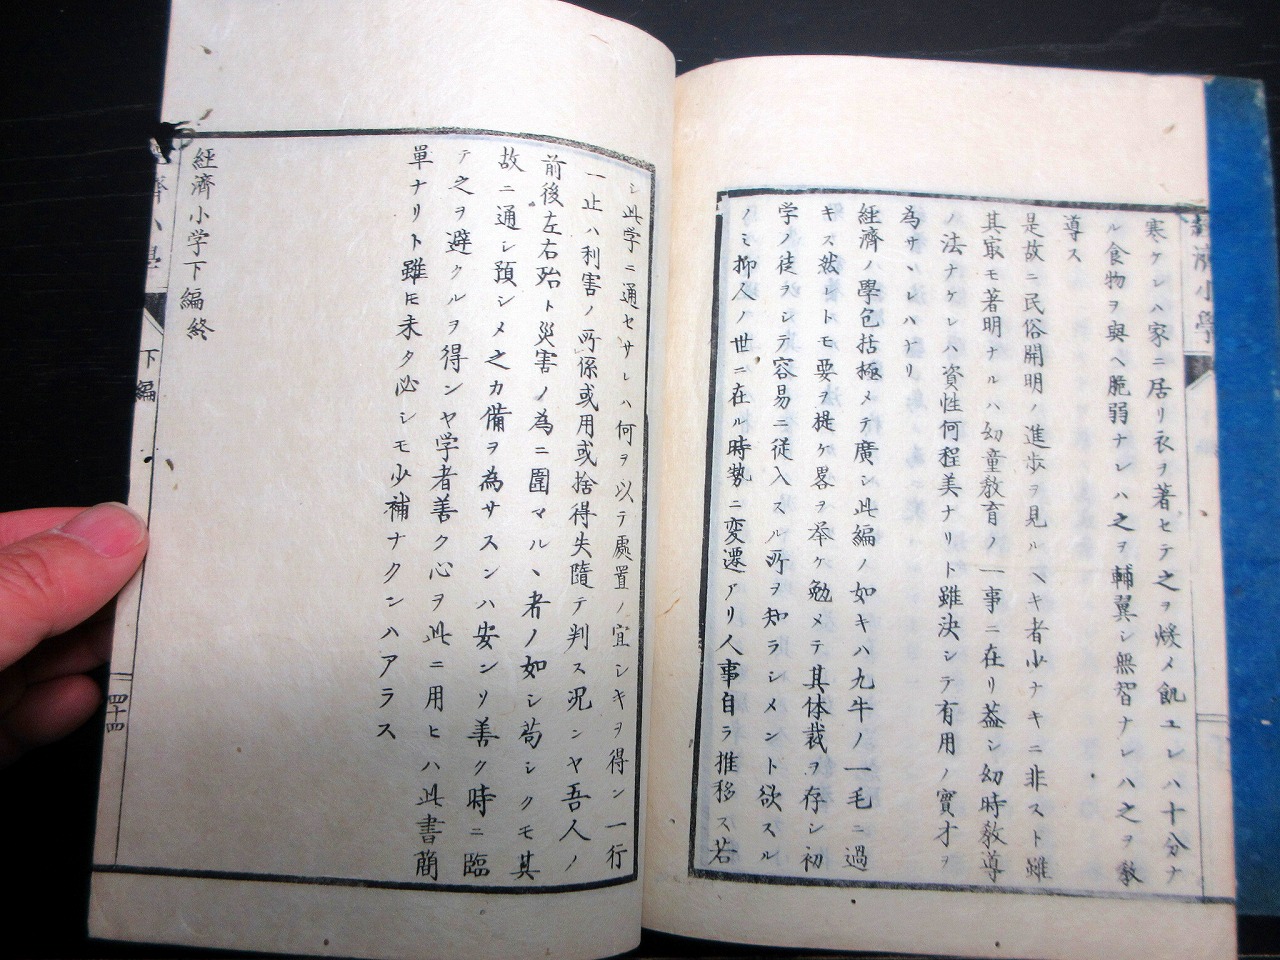 寒ケレハ家ニ居リ衣ヲ著セテ之ヲ煖メ飢ユレハ十分ナ
ル食物ヲ與ヘ脆弱ナレハ之ヲ輔翼シ無智ナレハ之ヲ教
導ス
是故ニ民俗開明ノ進歩ヲ見ルヘキ者少ナキニ非スト雖
其最モ著明ナルハ幼童教育ノ一事ニ在リ蓋シ幼時教導
ノ法ナケレハ資性何程美ナリト雖決シテ有用ノ實才ヲ
為サヽレハナリ
経濟ノ學包括極メテ廣シ此編ノ如キハ九牛ノ一毛ニ過
キス然レトモ要ヲ提ケ畧ヲ举ケ勉メテ其体裁ヲ存シ初
学ノ徒ヲシテ容易ニ従入スル所ヲ知ラシメント欲スル
ノミ抑人ノ世ニ在ル時勢ニ変遷アリ人事自ラ推移ス若
シ此学ニ通セサレハ何ヲ以テ處置ノ宜シキヲ得ン一行
一止ハ利害ノ所係或用或捨得失隨テ判ス况ンヤ吾人ノ
前後左右殆ト災害ノ為ニ圍マルヽ者ノ如シ苟シクモ其
故ニ通シ預シメ之カ備ヲ為サスンハ安ンソ善ク時ニ臨
テ之ヲ避クルヲ得ンヤ学者善ク心ヲ此ニ用ヒハ此書簡
單ナリト雖𪜈未タ必シモ少補ナクンハアラス
経濟小学下編終
下編
四十四